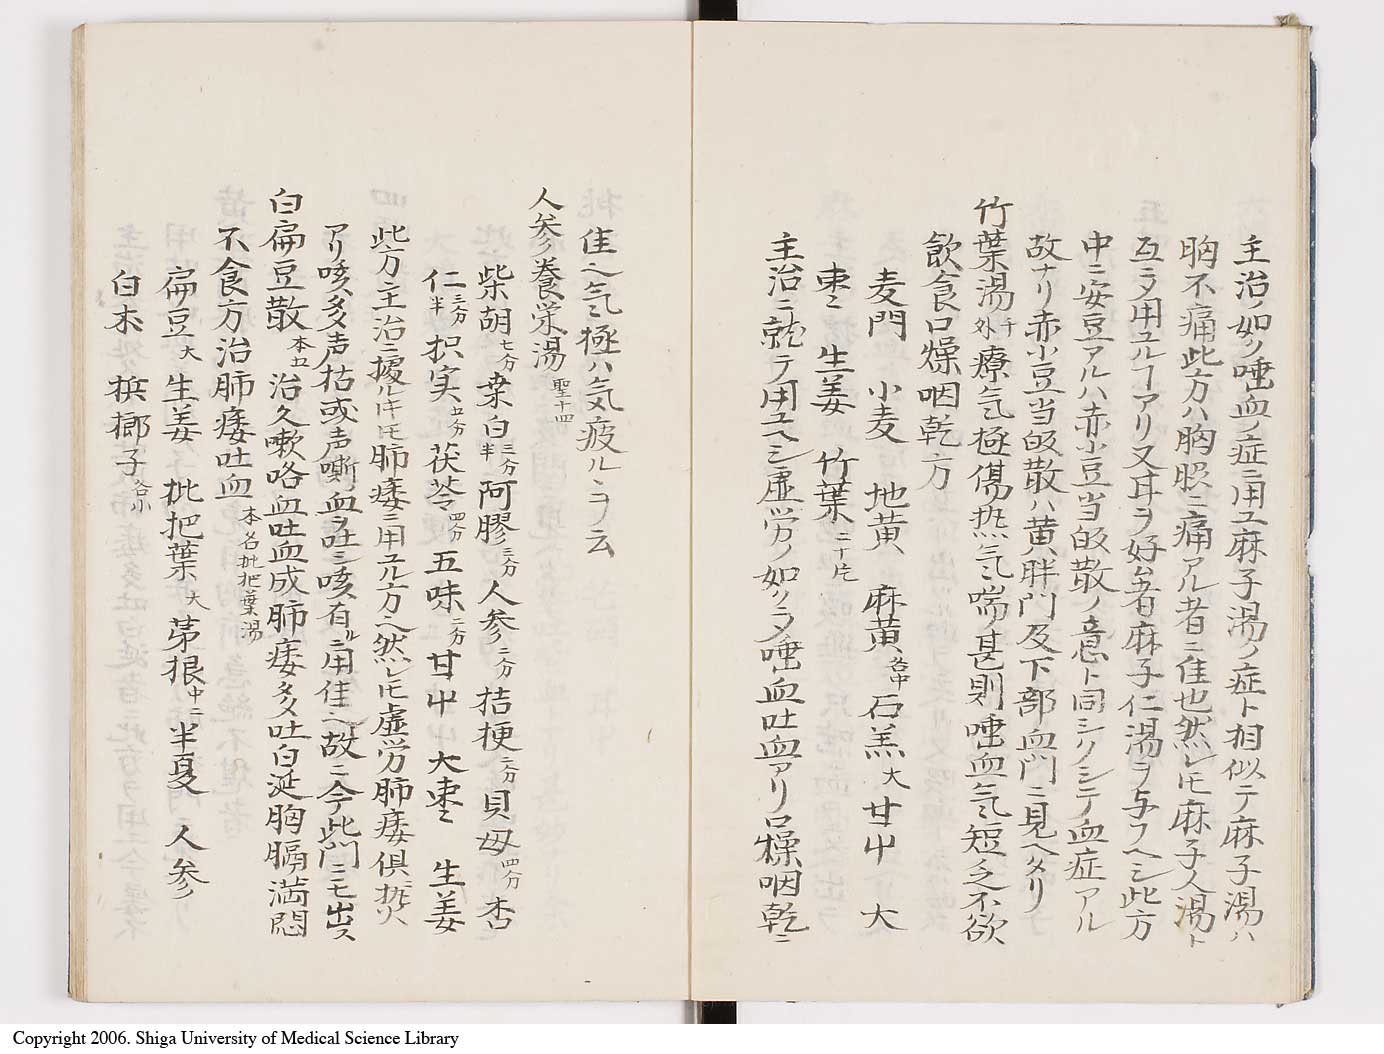 主治ノ如ク唾血ノ症ニ用ユ麻子湯ノ症ト相似テ麻子湯ハ
胸不痛此方ハ胸照ニ痛アル者ニ佳也然レㇳモ麻子人湯ト
互ラ用ユルヿアリ又耳ラ好者麻子仁湯ラ与フヘシ此方
中ニ安豆アルハ赤小豆当皈散ノ意ト同シクシテ血症アル
故ナリ赤小豆当皈散ハ黄胖門及下部血門ニ見ヘタリ
竹葉湯 千外 療气極傷热气喘甚則唾血气短乏不欲
飲食口燥咽乾方
麦門 小麦 地黄 麻黄 各中 石羔 大 甘中 大
枣 生姜 竹葉 二十片
主治ニ就テ用ユヘシ虚労ノ如クラ唾血吐血アリ口燥咽乾ニ
佳ヘ气極ハ気疲ルヽヲ云
人参養栄湯 聖十四
柴胡 七分 桒白 三分半 阿膠 三分 人参 二分 桔梗 二分 貝母 四分 杏
仁 三分半 枳実 五分 茯苓 四分 五味 二分 甘中 大枣 生姜
此方主治ニ擾ルㇳキㇳモ肺痿ニ用ユル方ヘ然レㇳモ虚労肺痿倶热火
アリ咳多声枯或声嘶血ラ吐ニ咳有ルニ用佳ヘ故ニ今此門ニモ出ス
白扁豆散 本五 治久嗽咯血吐血成肺痿多吐白涎胸膈満悶
不食方治肺痿吐血 本名枇把葉湯
扁豆 大 生姜 枇把葉 大 茅根 中二 半夏 人参
白朮 梹榔子 各小
Copyright 2006. Shiga University of Medical Science Library